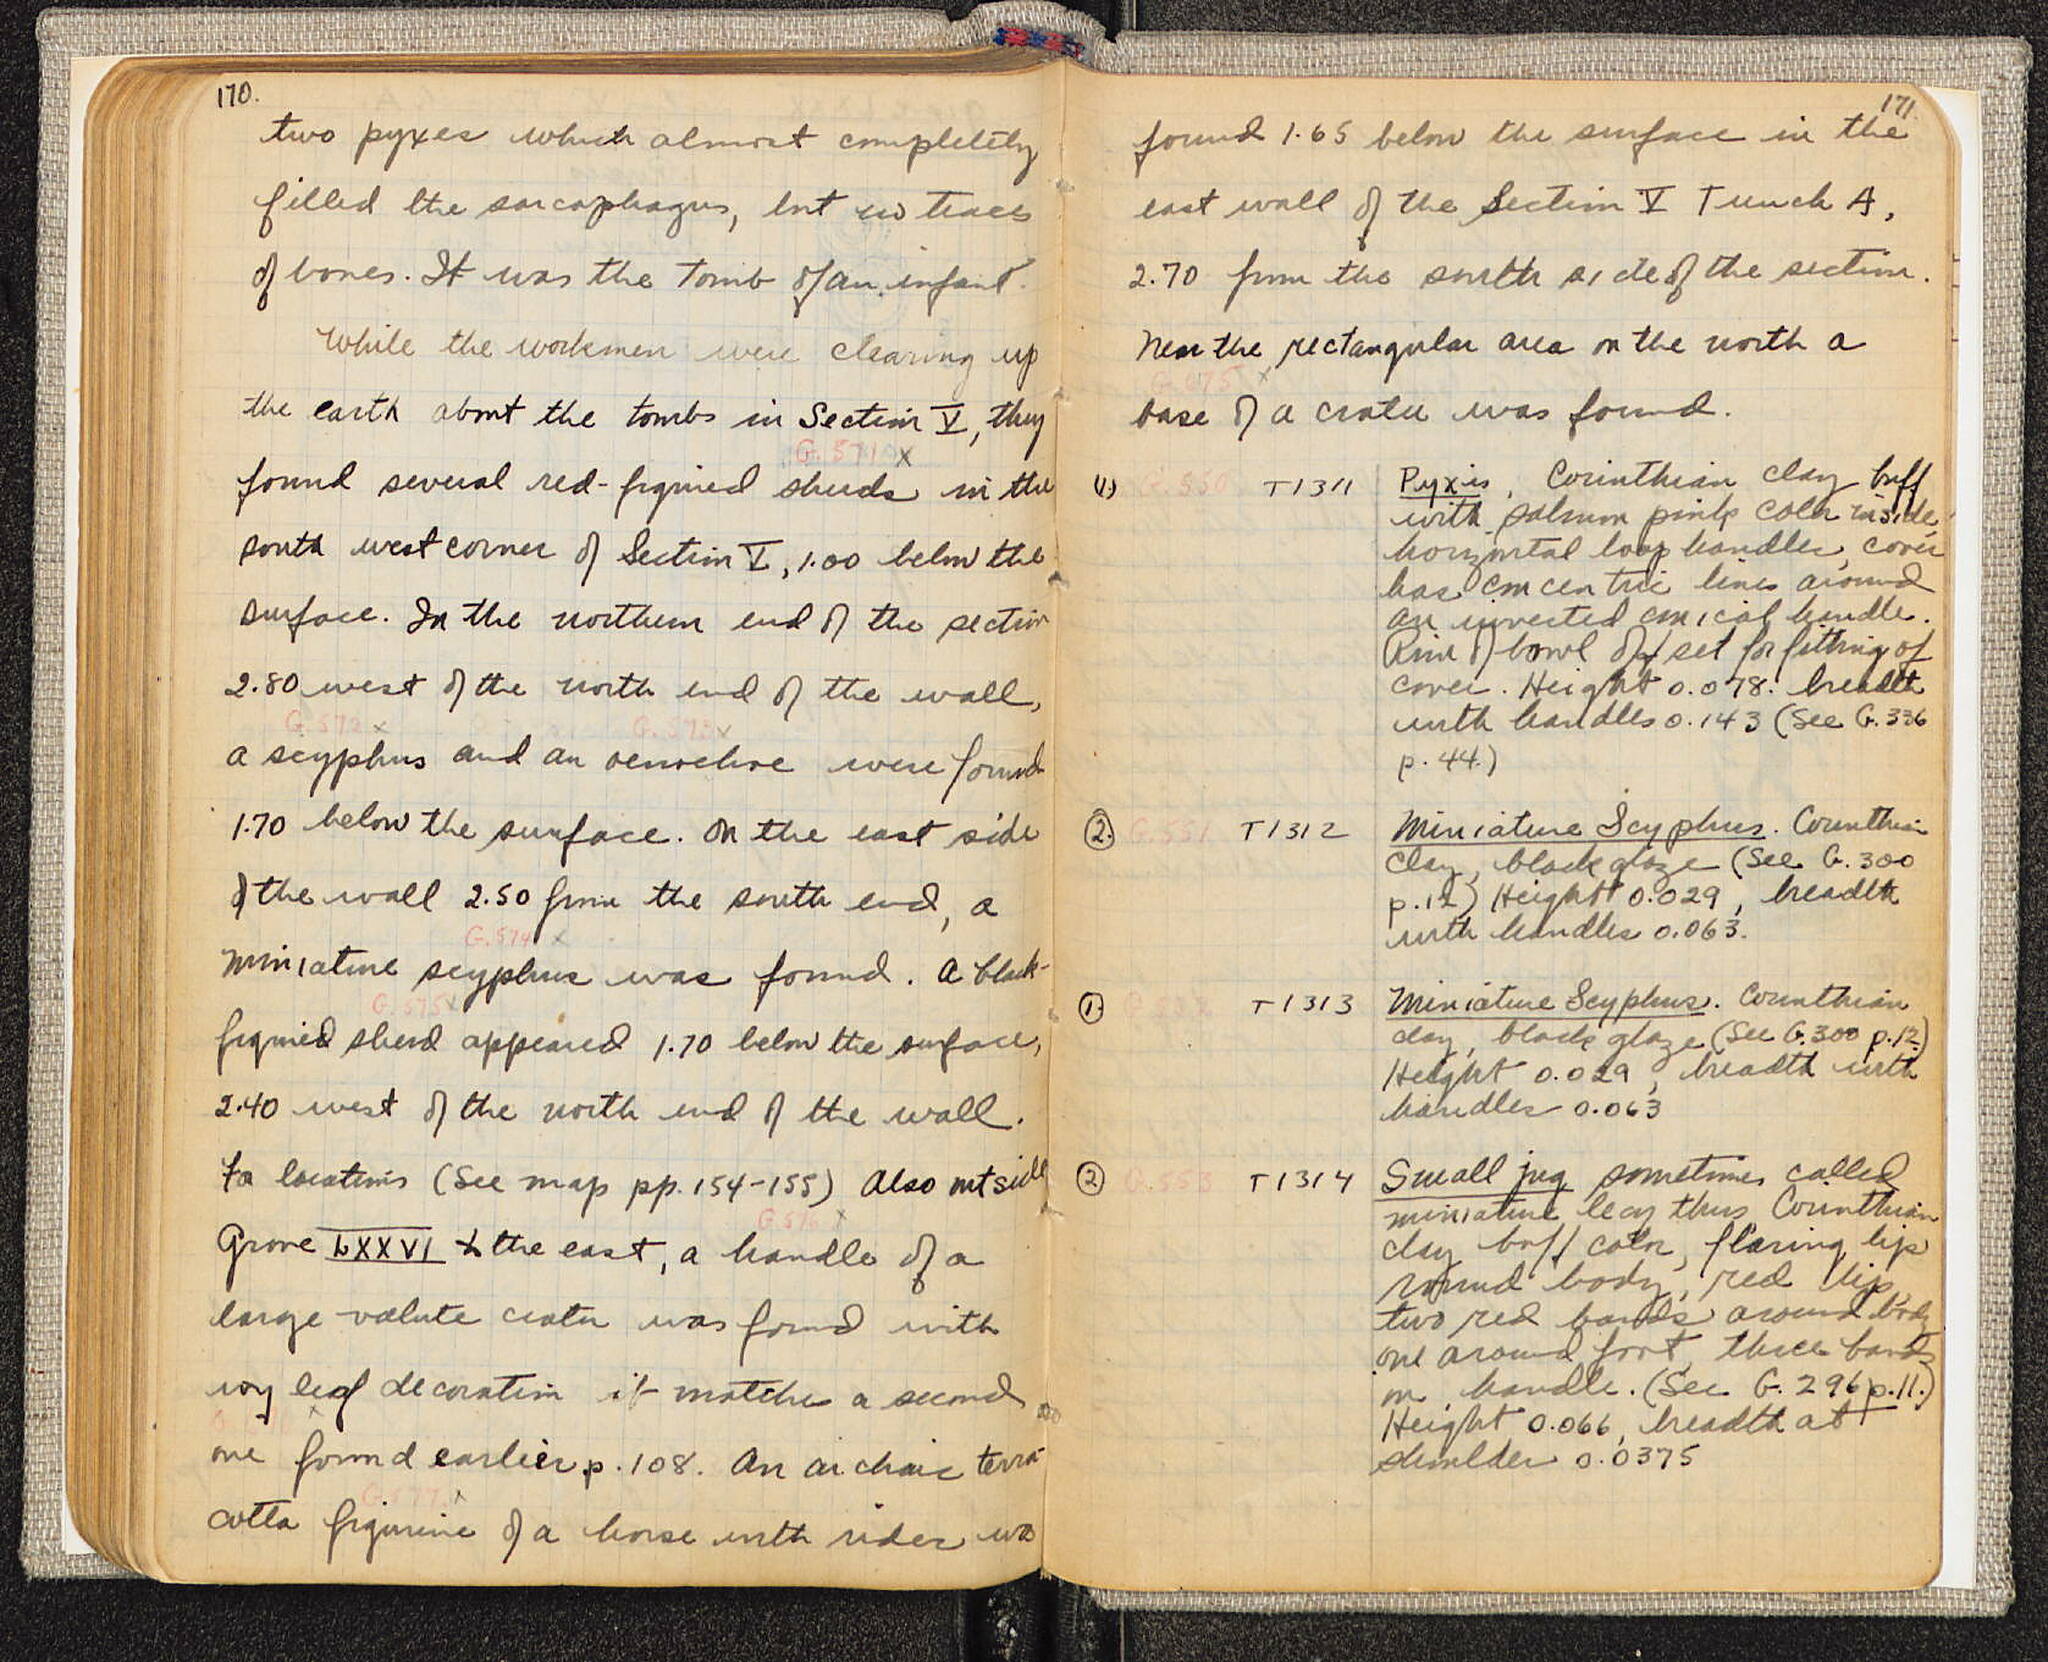 170.
two pyxes which almost completely
filled the sarcophagus, but no traces
of bones. It was the Tomb of an infant.
While the workmen were clearing up
the earth about the tombs in Section V, they
G.571 x
found several red-figured sherds in the
south west corner of Section V, 1.00 below the
surface. In the northern end of the section
2.80 west of the north end of the wall,
G.572 x G.573 x
a scyphus and an oenochoe were found
1.70 below the surface. On the east side
of the wall 2.50 from the south end, a
G.574 x
miniature scyphus was found. A black-
G.575 x
figured sherd appeared 1.70 below the surface,
2.40 west of the north end of the wall.
Fo locations (See map pp. 154-155) Also outside
G.576 x
Grave LXXVI to the east, a handle of a
large volute crater was found with
ivy leaf decoration it matches a second
x
one found earlier p. 108. An archaic terra-
G.577 x
cotta figurine of a horse with rider was
171.
found 1.65 below the surface in the
east wall of the Section V Trench A,
2.70 from the south side of the section.
Near the rectangular area on the north a
x
base of a crater was found.
(1) G.550 T1311 Pyxis, Corinthian clay buff
with salmon pink color inside,
horizontal loop handles, cover
has concentric lines around
an inverted conical handle.
Rim of bowl offset for fitting of
cover. Height 0.078. breadth
with handles 0.143 (See G.336
p. 44.)
(2.) G.551 T1312 Miniature Scyphus. Corinthian
clay, black glaze (See G.300
p.12) Height 0.029, breadth
with handles 0.063.
(1.) G.552 T1313 Miniature Scyphus. Corinthian
clay, black glaze (See G.300 p.12.)
Height 0.029, breadth with
handles 0.063
(2) G.553 T1314 Small jug sometimes called
miniature lecythus Corinthian
clay buff color, flaring lip
round body, red lip,
two red bands around body
one around foot, three bands
on handle. (See G. 296 p.11.)
Height 0.066, breadth at
shoulder 0.0375